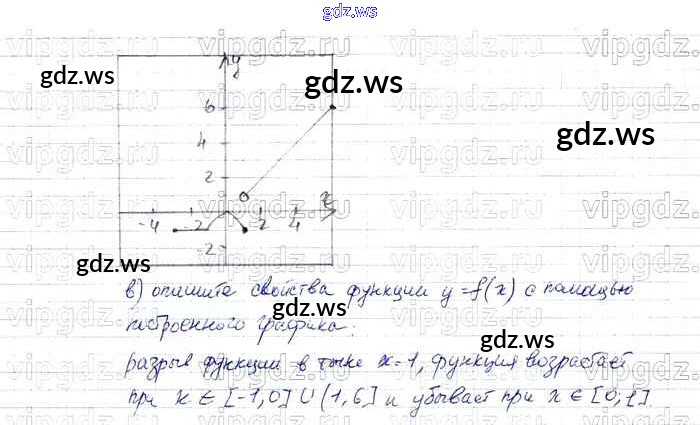 gdz.ws
y
gdz.ws
gdz.ws
6
gdz.ws
4
2
x
-4 -2 2 4
-2
gdz.ws
в) опишите свойства функции y=f(x) с помощью
построенного графика:
gdz.ws
gdz.ws
разрыв функции в точке x=1, функция возрастает
при x ∈ [-1,0] ∪ (1,6] и убывает при x ∈ [0,1].